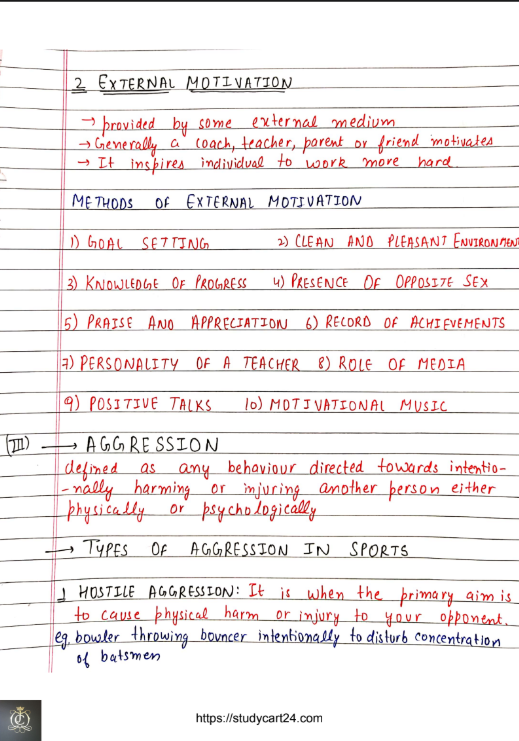 2 EXTERNAL MOTIVATION
→ provided by some external medium
→ Generally a coach, teacher, parent or friend motivates
→ It inspires individual to work more hard
METHODS OF EXTERNAL MOTIVATION
1) GOAL SETTING 2) CLEAN AND PLEASANT ENVIRONMENT
3) KNOWLEDGE OF PROGRESS 4) PRESENCE OF OPPOSITE SEX
5) PRAISE AND APPRECIATION 6) RECORD OF ACHIEVEMENTS
7) PERSONALITY OF A TEACHER 8) ROLE OF MEDIA
9) POSITIVE TALKS 10) MOTIVATIONAL MUSIC
(III) → AGGRESSION
defined as any behaviour directed towards intentio-
-nally harming or injuring another person either
physically or psychologically
→ TYPES OF AGGRESSION IN SPORTS
1 HOSTILE AGGRESSION: It is when the primary aim is
to cause physical harm or injury to your opponent.
eg. bowler throwing bouncer intentionally to disturb concentration
of batsmen
https://studycart24.com